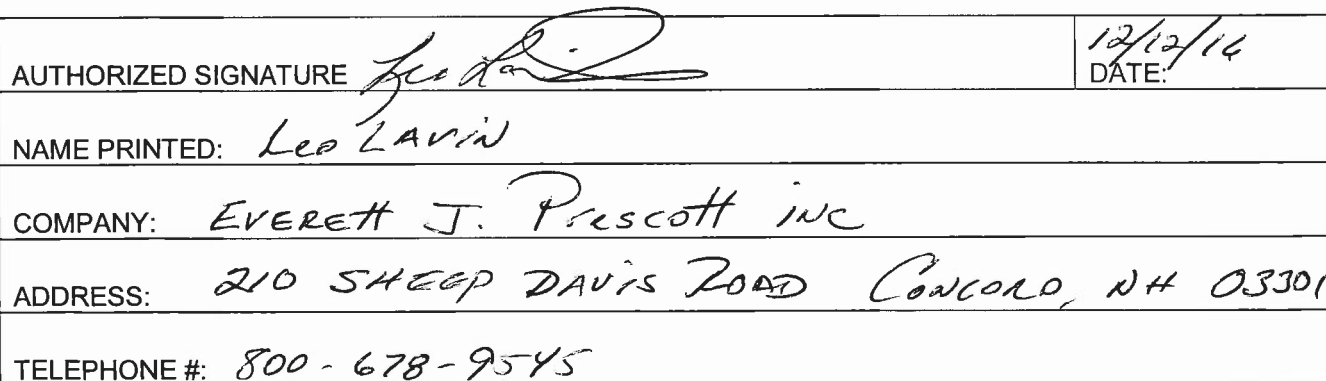 AUTHORIZED SIGNATURE Leo Lavin
12/12/16
DATE:
NAME PRINTED: Leo LAViN
COMPANY: EVEREtt J. Prescott iNC
ADDRESS: 210 SHEEP DAViS ROAD CONCORD, NH 03301
TELEPHONE #: 800-678-9545